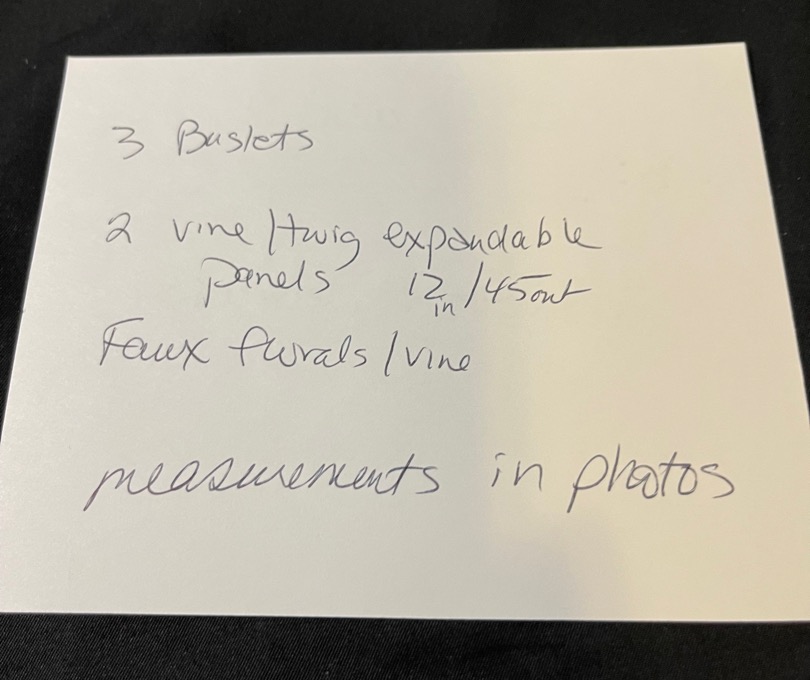 3 Baskets
2 vine/twig expandable
panels 12in/45out
Faux florals/vine
measurements in photos